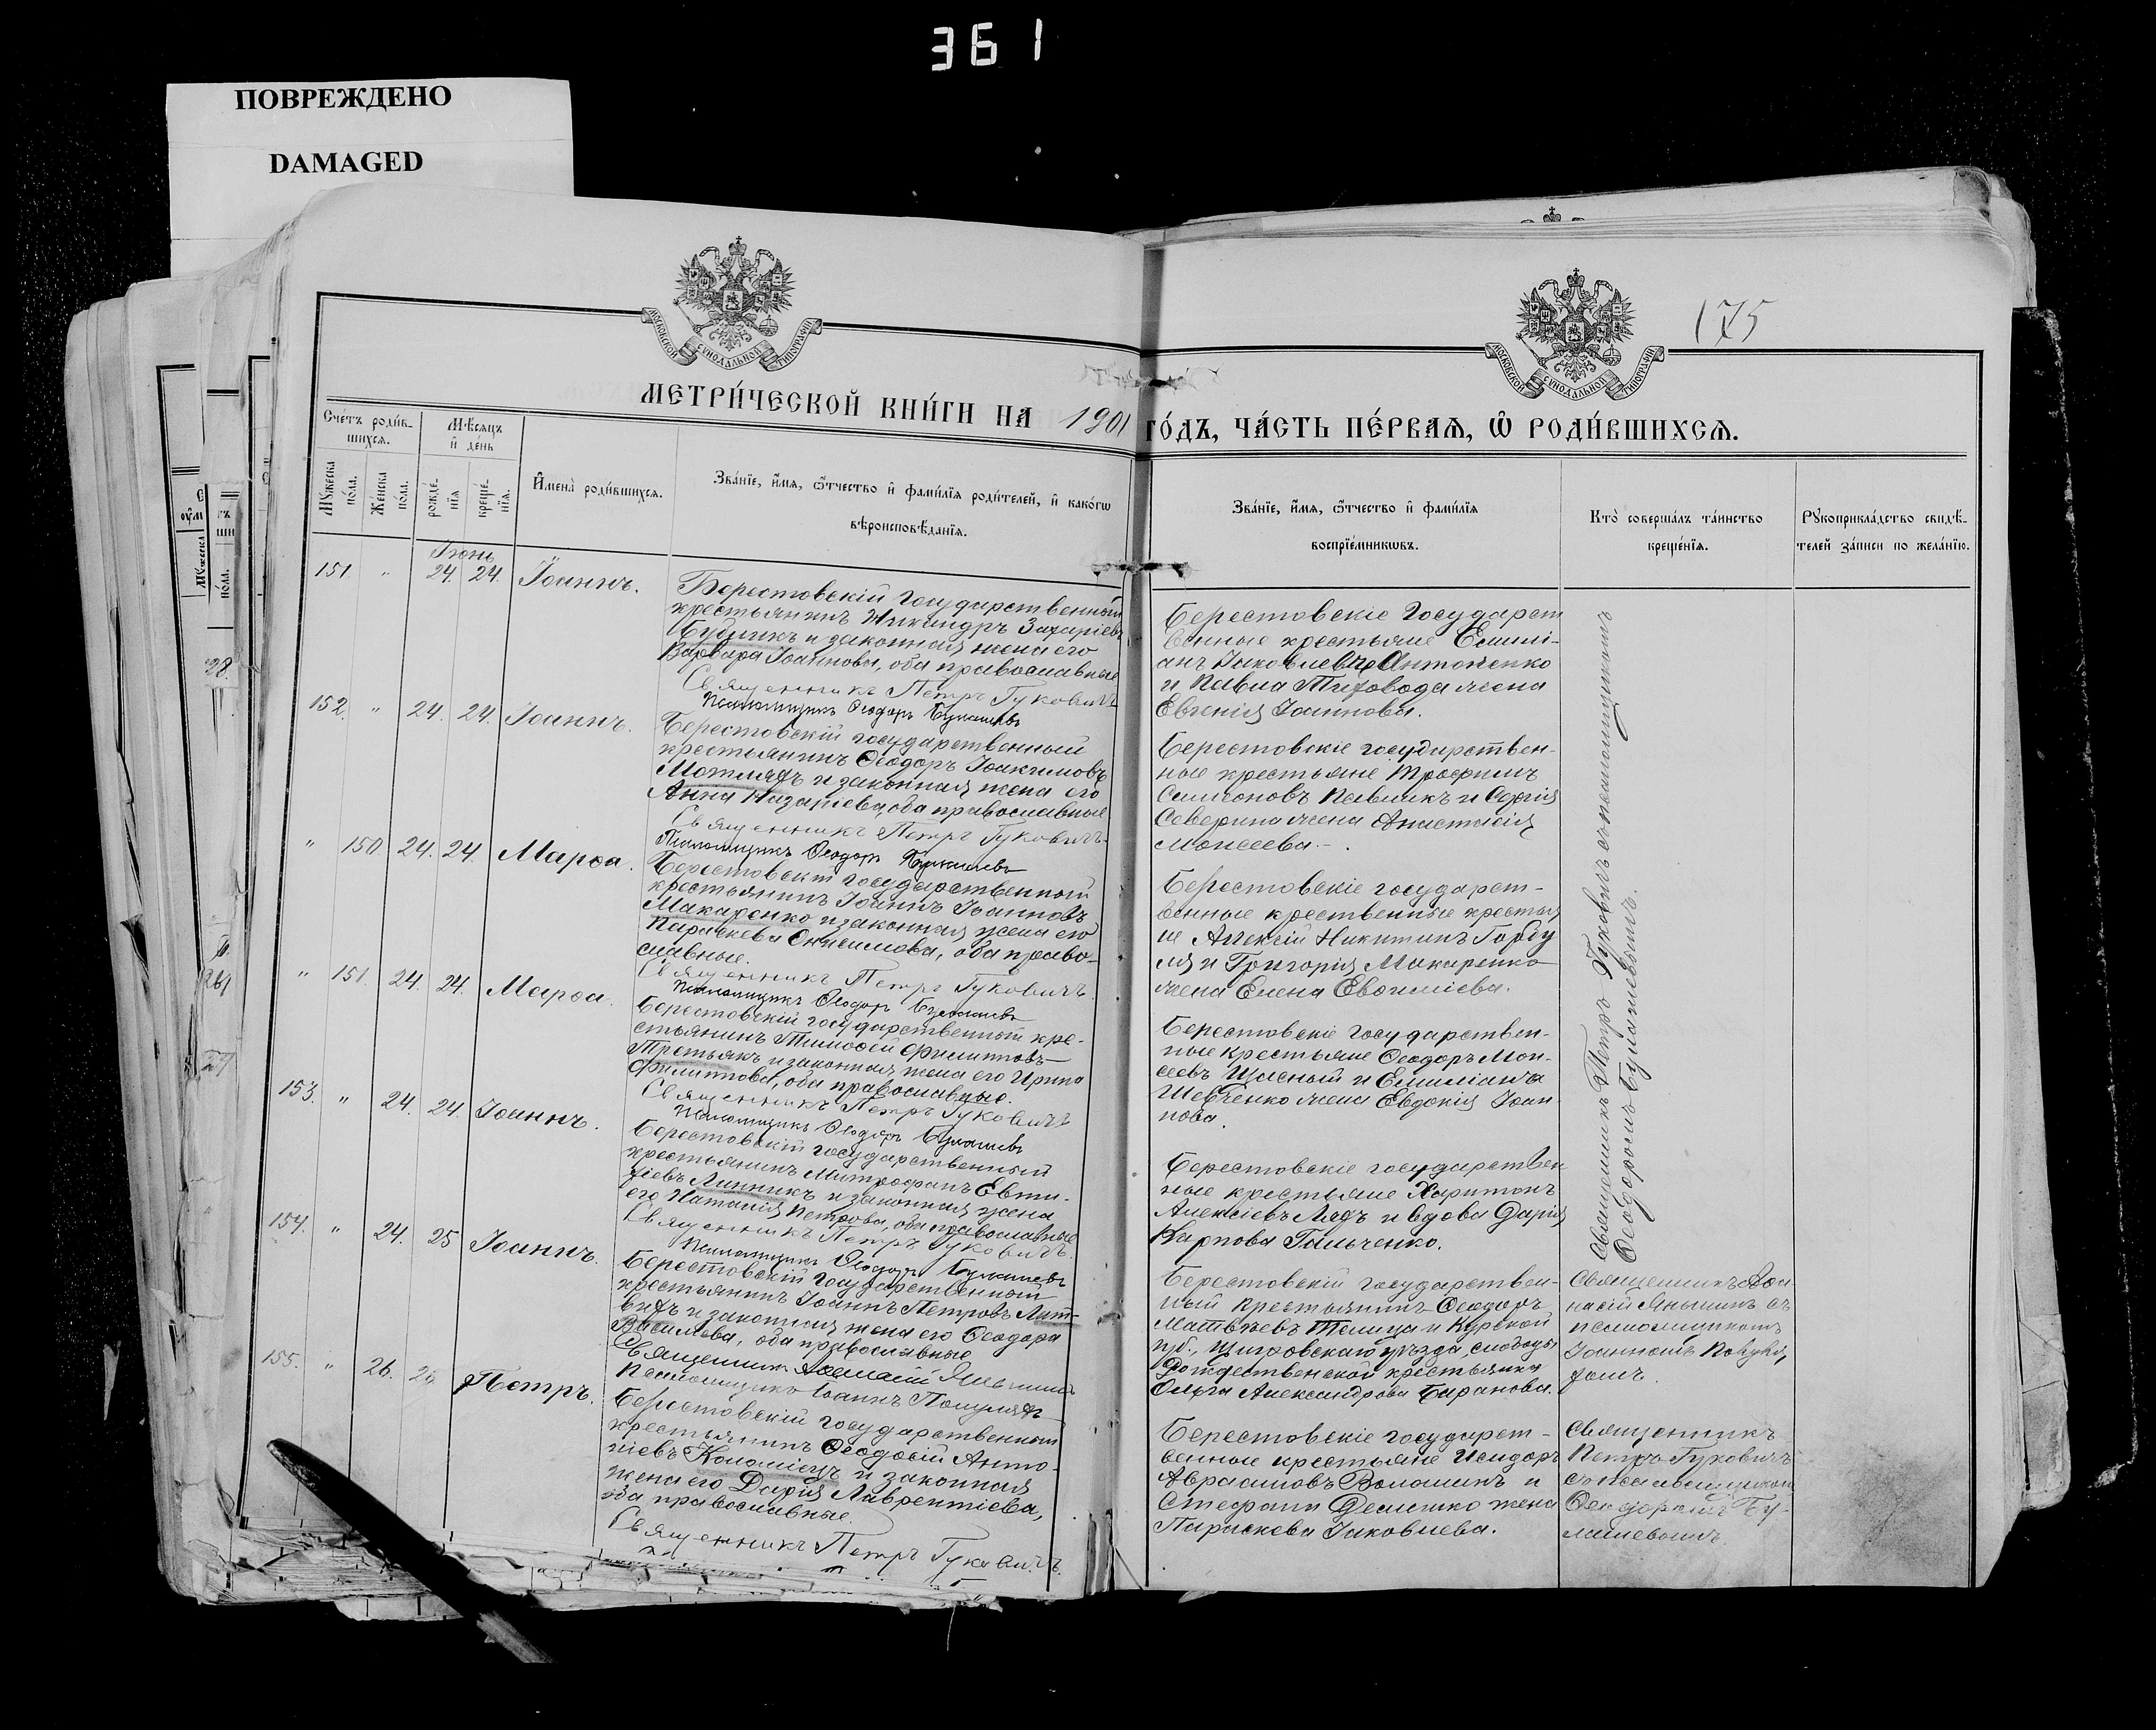 361
ПОВРЕЖДЕНО
DAMAGED
МОСКОВСКОЙ СѴНОДАЛЬНОЙ ТИПОГРАФІИ
МОСКОВСКОЙ СѴНОДАЛЬНОЙ ТИПОГРАФІИ
175
МЕТРИ́ЧЕСКОЙ КНИ́ГИ НА 1901 ГО́ДЪ, ЧА́СТЬ ПЕ́РВАѦ, Ѡ҆ РОДИ́ВШИХСѦ.
Сче́тъ роди́в-
шихся.
Мѣ́сяцъ
и҆ де́нь
Мꙋ́жеска
по́ла.
Же́нска
по́ла.
рожде́-
нїя
креще́-
нїя.
И҆мена̀ роди́вшихся.
Зва́нїе, и҆́мя, ѻ҆́тчество и҆ фами́лїя роди́телей, и҆ како́гѡ
вѣроисповѣ́данїя.
Зва́нїе, и҆́мя, ѻ҆́тчество и҆ фами́лїя
воспрїе́мникѡвъ.
Кто̀ соверша́лъ та́инство
креще́нїя.
Рꙋкоприкла́дство свидѣ́-
телей за́писи по жела́нїю.
Іюнь
151. " 24. 24. Іоаннъ.
Берестовскій государственный
крестьянинъ Никандръ Захаріевъ
Будникъ и законная жена его
Варвара Іоаннова, оба православные
Священникъ Петръ Гуковичъ
Псаломщикъ Ѳеодоръ Булашевъ
Берестовскіе государст
венные крестьяне Емилі-
анъ Іаковлевъ Антоненко
и Павла Тиховода жена
Евгенія Іоаннова.
Священникъ Петръ Гуковичъ съ псаломщикомъ
Ѳеодоромъ Булашевымъ.
152. " 24. 24. Іоаннъ.
Берестовскій государственный
крестьянинъ Ѳеодоръ Іоакимовъ
Мотлядъ и законная жена его
Анна Назаріева, оба православные
Священникъ Петръ Гуковичъ.
Псаломщикъ Ѳеодоръ Булашевъ
Берестовскіе государствен-
ные крестьяне Трофимъ
Симеоновъ Павликъ и Сергія
Северина жена Анастасія
Моисеева.
" 150 24. 24. Марѳа.
Берестовскій государственный
крестьянинъ Іоаннъ Іоанновъ
Макаренко и законная жена его
Параскева Онисимова, оба право-
славные.
Священникъ Петръ Гуковичъ.
Псаломщикъ Ѳеодоръ Булашевъ
Берестовскіе государст-
венные крественные крестья
не Алексій Никитинъ Горбу
ля и Григорія Макаренко
жена Елена Евѳиміева.
" 151. 24. 24. Марѳа.
Берестовскій государственный кре-
стьянинъ Тимоѳей Филипповъ
Третьякъ и законная жена его Ирина
Филиппова, оба православные.
Священникъ Петръ Гуковичъ
Псаломщикъ Ѳеодоръ Булашевъ
Берестовскіе государствен-
ные крестьяне Ѳеодоръ Мои-
сеевъ Щасный и Емиліана
Шевченко жена Евдокія Іоан
нова.
153. " 24. 24. Іоаннъ.
Берестовскій государственный
крестьянинъ Митрофанъ Евти-
хіевъ Линникъ и законная жена
его Наталія Петрова, оба православные
Священникъ Петръ Гуковичъ.
Псаломщикъ Ѳеодоръ Булашевъ
Берестовскіе государствен
ные крестьяне Харитонъ
Алексіевъ Лядъ и вдова Дарія
Карпова Гальченко.
154. " 24. 25 Іоаннъ.
Берестовскій государственный
крестьянинъ Іоаннъ Петровъ Лит-
винъ и законная жена его Ѳеодора
Васильева, оба православные
Священникъ Аѳанасій Яньшинъ
Псаломщикъ Іоаннъ
Берестовскій государствен-
ный крестьянинъ Ѳеодоръ
Матвѣевъ Телица и Курской
губ., Щигровскаго уѣзда, слободы
Рождественской крестьянка
Ольга Александрова Баранова.
Священникъ Аѳа-
насій Яньшинъ съ
псаломщикомъ
Іоанномъ
155. " 26. 26. Петръ.
Берестовскій государственный
крестьянинъ Ѳеодосій Анто-
ніевъ Коломіецъ и законная
жена его Дарія Лаврентіева,
оба православные.
Священникъ Петръ Гуковичъ.
Берестовскіе государст-
венные крестьяне Исидоръ
Авраамовъ Волошинъ и
Стефана Демешко жена
Параскева Іаковлева.
Священникъ
Петръ Гуковичъ
съ псаломщикомъ
Ѳеодоромъ Бу-
лашевымъ.